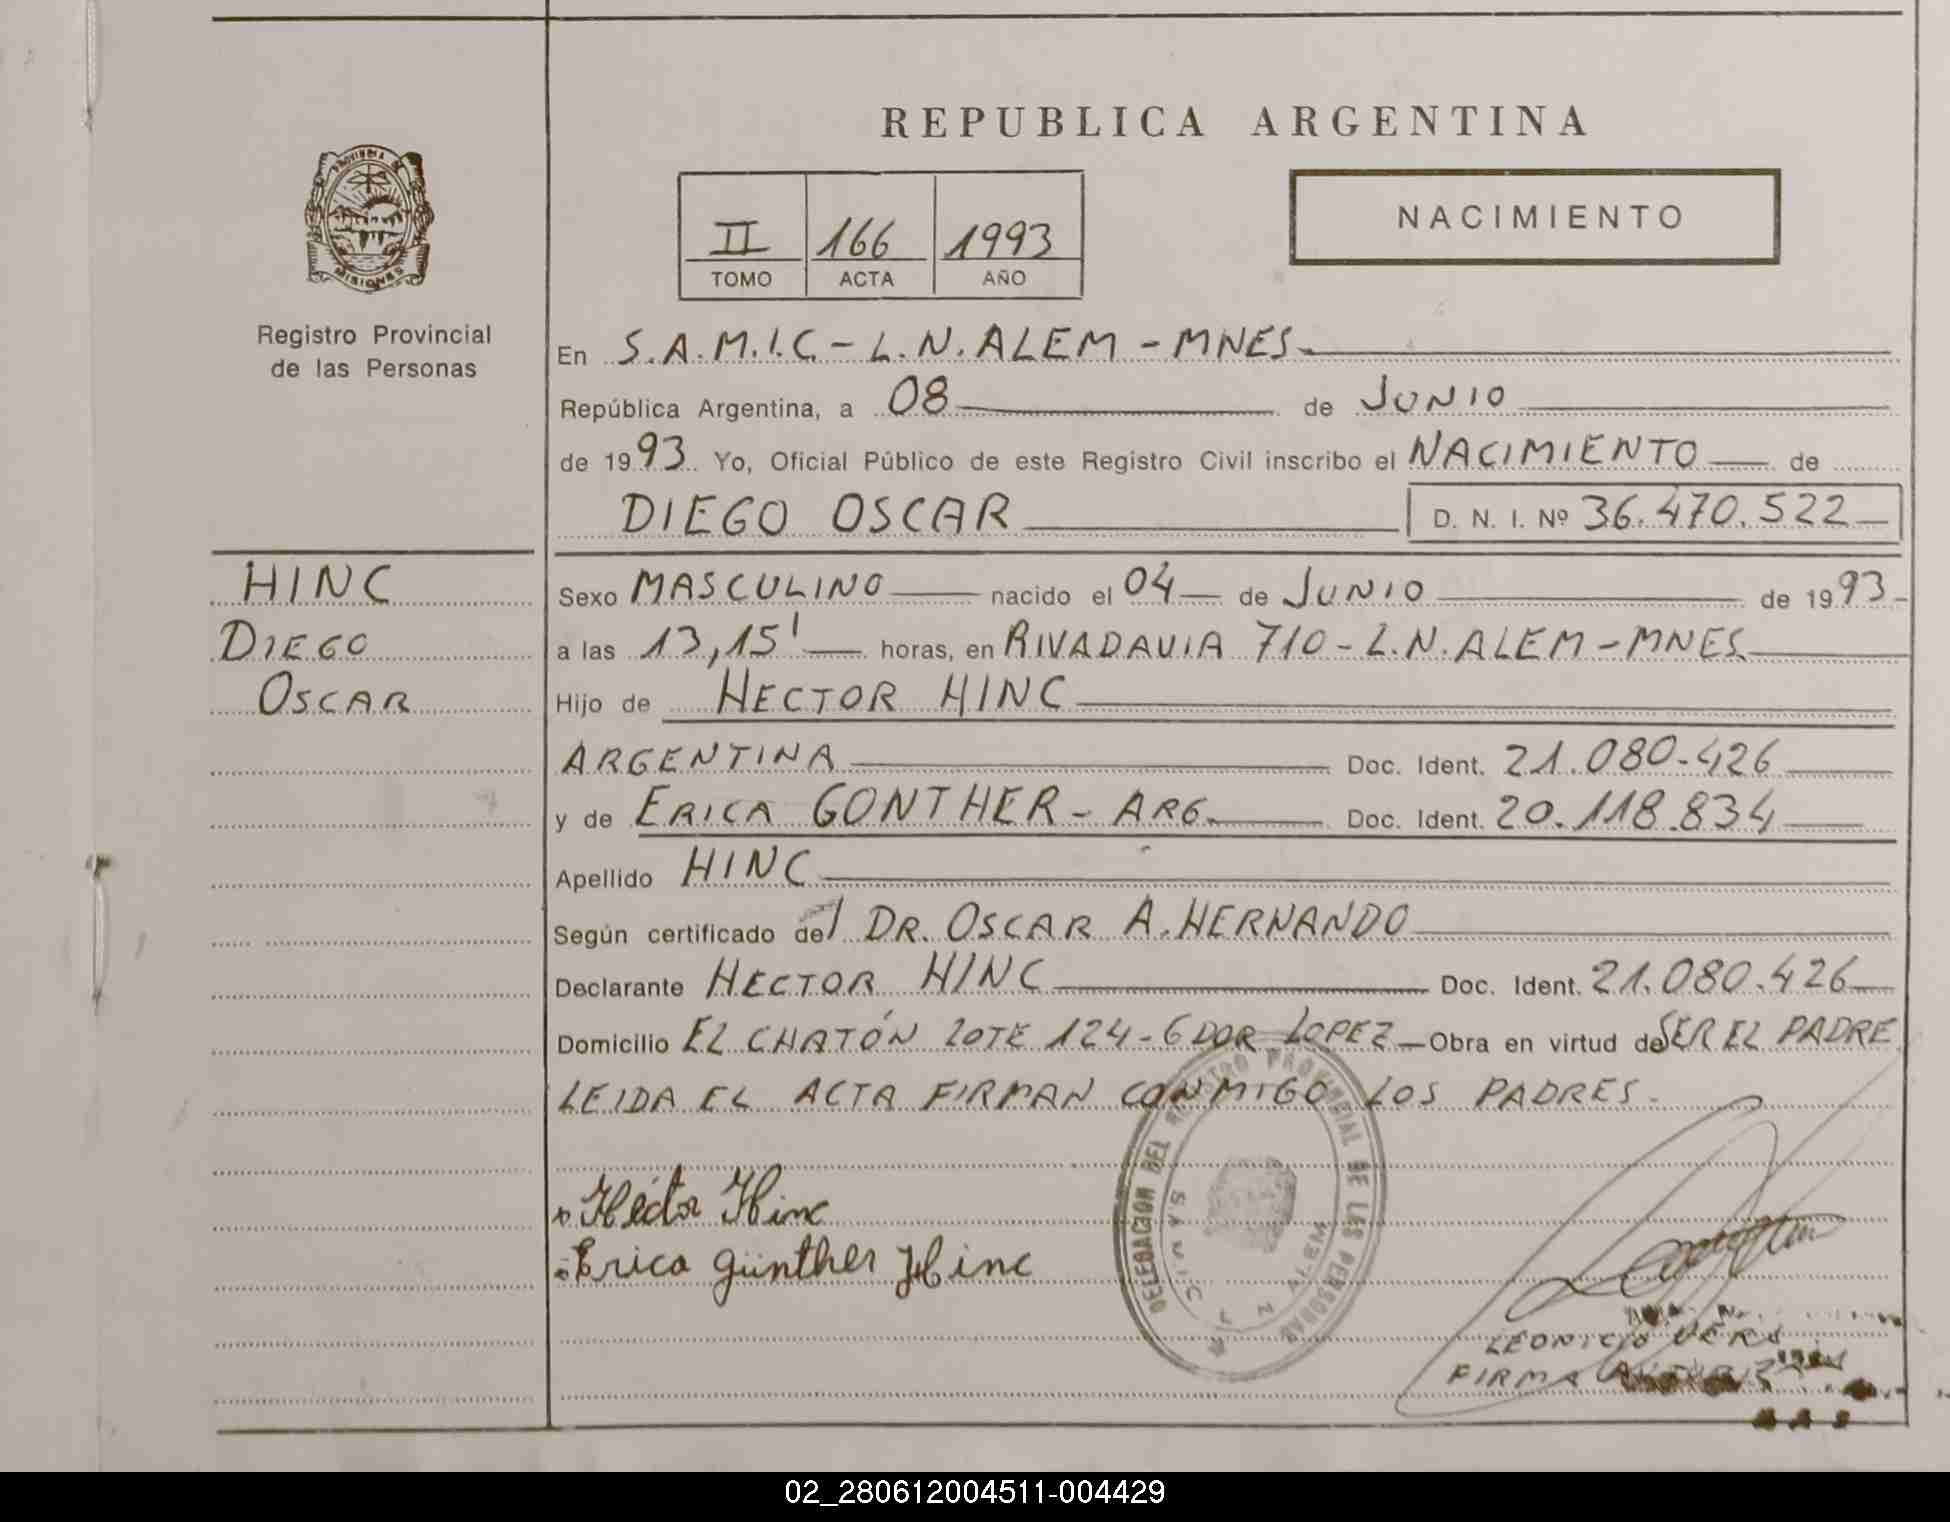 REPUBLICA ARGENTINA
PROVINCIA DE
MISIONES
Registro Provincial
de las Personas
II 166 1993
TOMO ACTA AÑO
NACIMIENTO
En S.A.M.I.C - L.N. ALEM - MNES
República Argentina, a 08 de JUNIO
de 1993 Yo, Oficial Público de este Registro Civil inscribo el NACIMIENTO de
DIEGO OSCAR D. N. I. Nº 36.470.522
HINC
DIEGO
OSCAR
Sexo MASCULINO nacido el 04 de JUNIO de 1993
a las 13,15' horas, en RIVADAVIA 710 - L.N. ALEM - MNES
Hijo de HECTOR HINC
ARGENTINA Doc. Ident. 21.080.426
y de ERICA GONTHER - ARG. Doc. Ident. 20.118.834
Apellido HINC
Según certificado del DR. OSCAR A. HERNANDO
Declarante HECTOR HINC Doc. Ident. 21.080.426
Domicilio EL CHATÓN LOTE 124 - GDOR LOPEZ Obra en virtud de SER EL PADRE
LEIDA EL ACTA FIRMAN CONMIGO LOS PADRES.
Héctor Hinc
Erica Günther Hinc
DELEGACION DEL REGISTRO PROVINCIAL DE LAS PERSONAS
N ALEM
LEONICIO VERA
FIRMA
02_280612004511-004429